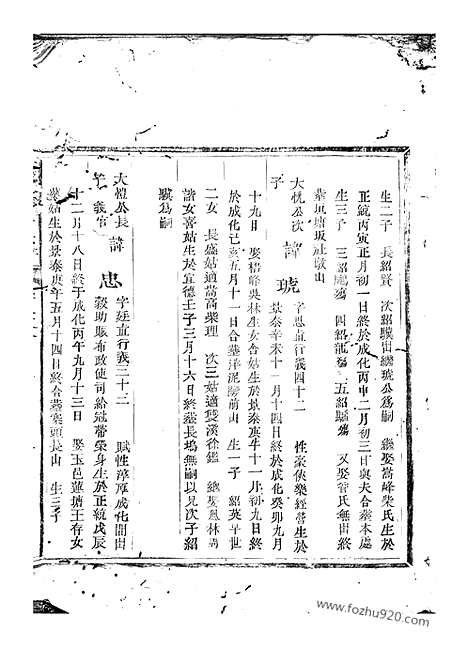 生二子 長紹賢 次紹驥出繼琥公爲嗣 繼娶嵩峰柴氏生於
正統丙寅正月初一日終於成化丙申二月初三日與夫合葬本處
生三子 三紹 四紹 五紹 又娶管氏無出終
葬 塘坂社墩山
大忱公次子 諱琥 字思直行義四十二 性豪俠樂經營生於
景泰辛未十一月十四日終於成化癸卯九月
十九日 娶梧峰吳林生女舍姑生於景泰庚午十一月初九日終
於成化己亥五月十一日合葬洋泥 前山 生一子 紹英早世
二女 長盛姑適嵩高柴理 次三姑適雙溪徐鑑 繼娶鳳林周
諧女喜姑生於宣德壬子三月十六日終葬長塢無嗣以兄次子紹
驥爲嗣
大禮公長子義官 諱忠 字廷直行義三十三 賦性淳厚成化間出
穀助賑布政使司給冠帶榮身生於正統戊辰
十二月十八日終于成化丙午九月十三日 娶玉邑蓮塘王存女
葵姑生於景泰庚午五月十四日終合葬葉頭長山 生三子
www.fozhu920.com